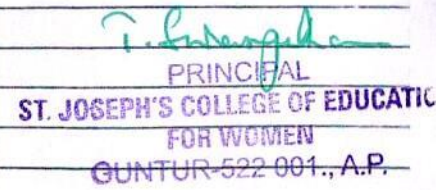 PRINCIPAL
ST. JOSEPH'S COLLEGE OF EDUCATIO
FOR WOMEN
GUNTUR-522 001., A.P.